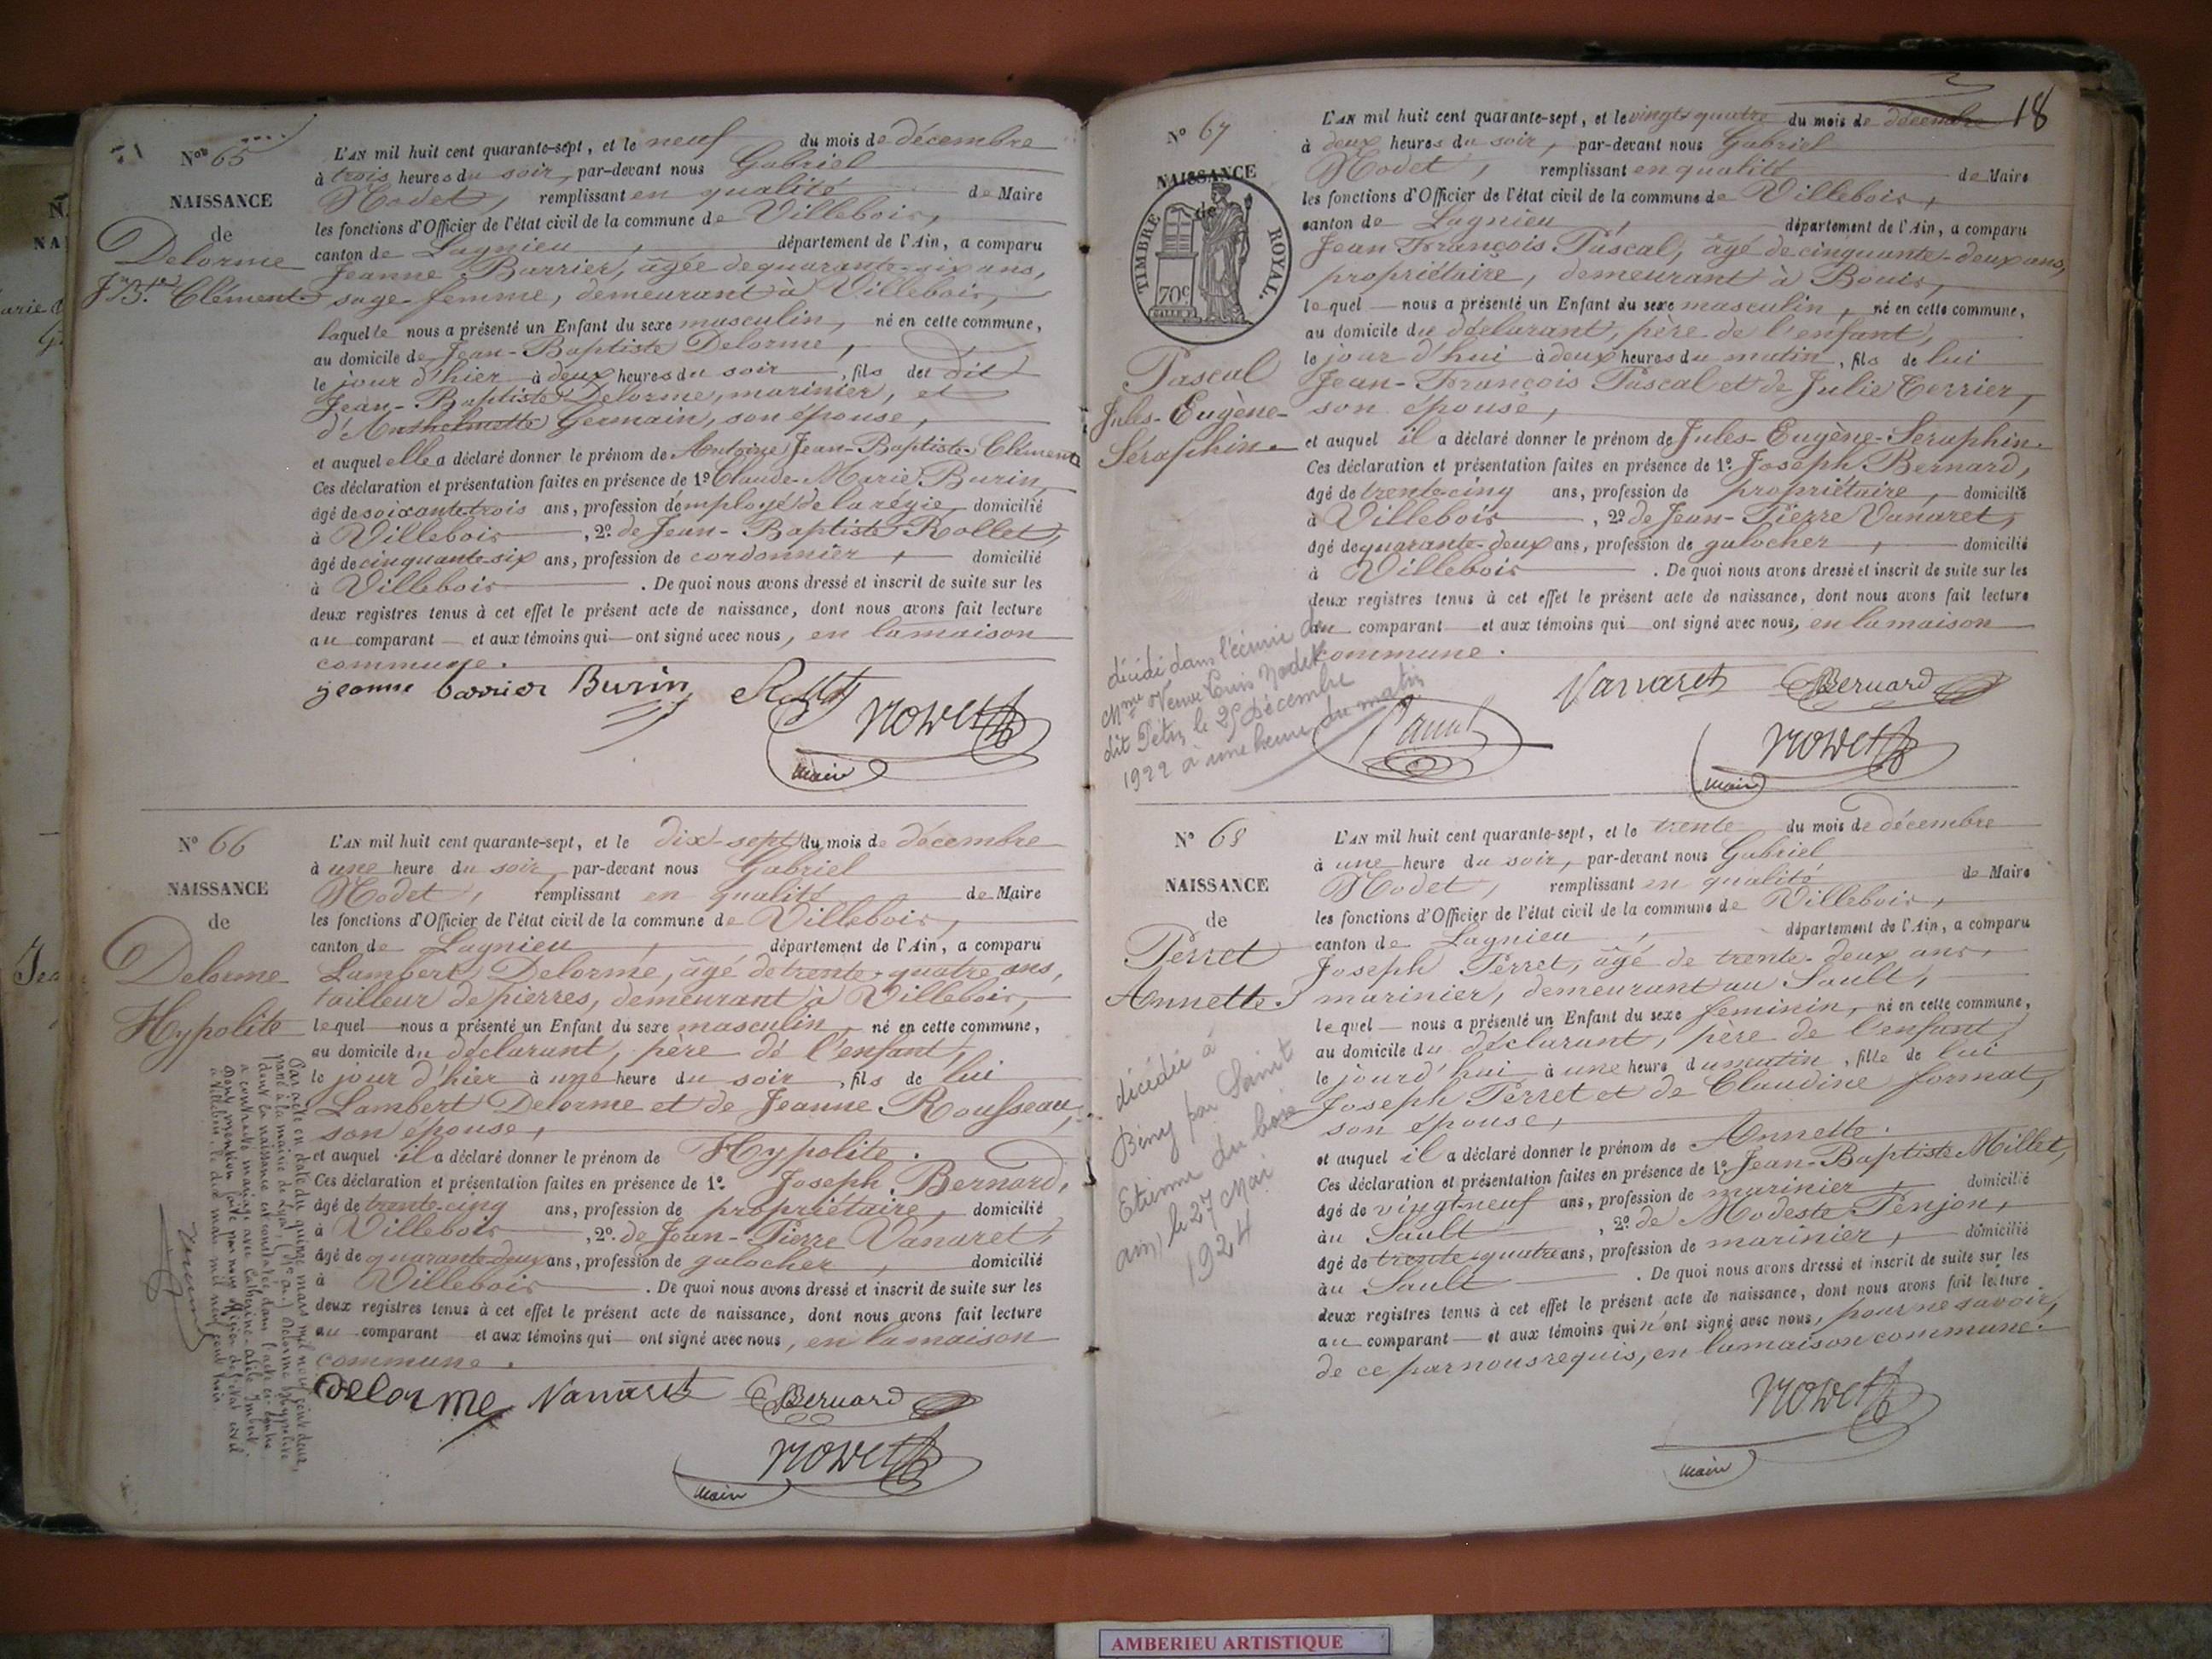 N° 65
NAISSANCE
de
Delorme
Jn Bte Clément
L'AN mil huit cent quarante-sept, et le neuf du mois de décembre
à trois heures du soir, par-devant nous Gabriel
Nodet, remplissant en qualité de Maire
les fonctions d'Officier de l'état civil de la commune de Villebois,
canton de Lagnieu, département de l'Ain, a comparu
Jeanne Barrier, âgée de quarante-six ans,
sage-femme, demeurant à Villebois,
laquelle nous a présenté un Enfant du sexe masculin, né en cette commune,
au domicile de Jean-Baptiste Delorme,
le jour d'hier à deux heures du soir, fils du dit
Jean-Baptiste Delorme, marinier, et
d'Anthelmette Germain, son épouse,
et auquel elle a déclaré donner le prénom de Antoine Jean-Baptiste Clément
Ces déclaration et présentation faites en présence de 1° Claude-Marie Burin,
âgé de soixante-trois ans, profession d'employé de la régie, domicilié
à Villebois, 2° de Jean-Baptiste Rollet,
âgé de cinquante-six ans, profession de cordonnier, domicilié
à Villebois. De quoi nous avons dressé et inscrit de suite sur les
deux registres tenus à cet effet le présent acte de naissance, dont nous avons fait lecture
au comparant et aux témoins qui ont signé avec nous, en la maison
commune.
jeanne barrier Burin Rollet
Nodet
maire
N° 66
NAISSANCE
de
Delorme
Hypolite
L'AN mil huit cent quarante-sept, et le dix-sept du mois de décembre
à une heure du soir, par-devant nous Gabriel
Nodet, remplissant en qualité de Maire
les fonctions d'Officier de l'état civil de la commune de Villebois,
canton de Lagnieu, département de l'Ain, a comparu
Lambert Delorme, âgé de trente-quatre ans,
tailleur de pierres, demeurant à Villebois,
lequel nous a présenté un Enfant du sexe masculin, né en cette commune,
au domicile du déclarant, père de l'enfant,
le jour d'hier à une heure du soir, fils de lui
Lambert Delorme et de Jeanne Rousseau,
son épouse,
et auquel il a déclaré donner le prénom de Hypolite.
Ces déclaration et présentation faites en présence de 1° Joseph Bernard,
âgé de trente-cinq ans, profession de propriétaire, domicilié
à Villebois, 2° de Jean-Pierre Vanaret,
âgé de quarante-deux ans, profession de galocher, domicilié
à Villebois. De quoi nous avons dressé et inscrit de suite sur les
deux registres tenus à cet effet le présent acte de naissance, dont nous avons fait lecture
au comparant et aux témoins qui ont signé avec nous, en la maison
commune.
Par acte en date du quinze mars mil neuf cent deux,
passé à la mairie de (Ain) Delorme hyppolite
dont la naissance est constatée dans l'acte ci-contre
a contracté mariage avec Catherine Imbert.
Dont mention faite par nous officier de l'état civil
à Villebois, le dix mars mil neuf cent trois
Delorme Vanaret Bernard
Nodet
maire
18
N° 67
NAISSANCE
de
TIMBRE ROYAL.
70c
Pascal
Jules-Eugène-
Séraphin
L'AN mil huit cent quarante-sept, et le vingt-quatre du mois de décembre
à deux heures du soir, par-devant nous Gabriel
Nodet, remplissant en qualité de Maire
les fonctions d'Officier de l'état civil de la commune de Villebois,
canton de Lagnieu, département de l'Ain, a comparu
Jean François Pascal, âgé de cinquante-deux ans,
propriétaire, demeurant à Bouis,
lequel nous a présenté un Enfant du sexe masculin, né en cette commune,
au domicile du déclarant, père de l'enfant,
le jour d'hui à deux heures du matin, fils de lui
Jean-François Pascal et de Julie Terrier,
son épouse,
et auquel il a déclaré donner le prénom de Jules-Eugène-Séraphin.
Ces déclaration et présentation faites en présence de 1° Joseph Bernard,
âgé de trente-cinq ans, profession de propriétaire, domicilié
à Villebois, 2° de Jean-Pierre Vanaret,
âgé de quarante-deux ans, profession de galocher, domicilié
à Villebois. De quoi nous avons dressé et inscrit de suite sur les
deux registres tenus à cet effet le présent acte de naissance, dont nous avons fait lecture
au comparant et aux témoins qui ont signé avec nous, en la maison
commune.
décédé dans l'écurie de
Mme Veuve Louis Nodet
dit Pétrz le 25 Décembre
1922 à une heure du matin
Vanaret Bernard
Pascal
Nodet
maire
N° 68
NAISSANCE
de
Perret
Annette.
L'AN mil huit cent quarante-sept, et le trente du mois de décembre
à une heure du soir, par-devant nous Gabriel
Nodet, remplissant en qualité de Maire
les fonctions d'Officier de l'état civil de la commune de Villebois,
canton de Lagnieu, département de l'Ain, a comparu
Joseph Perret, âgé de trente-deux ans,
marinier, demeurant au Sault,
lequel nous a présenté un Enfant du sexe féminin, né en cette commune,
au domicile du déclarant, père de l'enfant,
le jourd'hui à une heure du matin, fille de lui
Joseph Perret et de Claudine Format,
son épouse,
et auquel il a déclaré donner le prénom de Annette.
Ces déclaration et présentation faites en présence de 1° Jean-Baptiste Millet,
âgé de vingt-neuf ans, profession de marinier, domicilié
au Sault, 2° de Modeste Penjon,
âgé de trente-quatre ans, profession de marinier, domicilié
au Sault. De quoi nous avons dressé et inscrit de suite sur les
deux registres tenus à cet effet le présent acte de naissance, dont nous avons fait lecture
au comparant et aux témoins qui n'ont signé avec nous, pour ne savoir,
de ce par nous requis, en la maison commune.
décédée à
Bény par Saint
Etienne du bois
ain) le 27 Mai
1924
Nodet
maire
AMBERIEU ARTISTIQUE